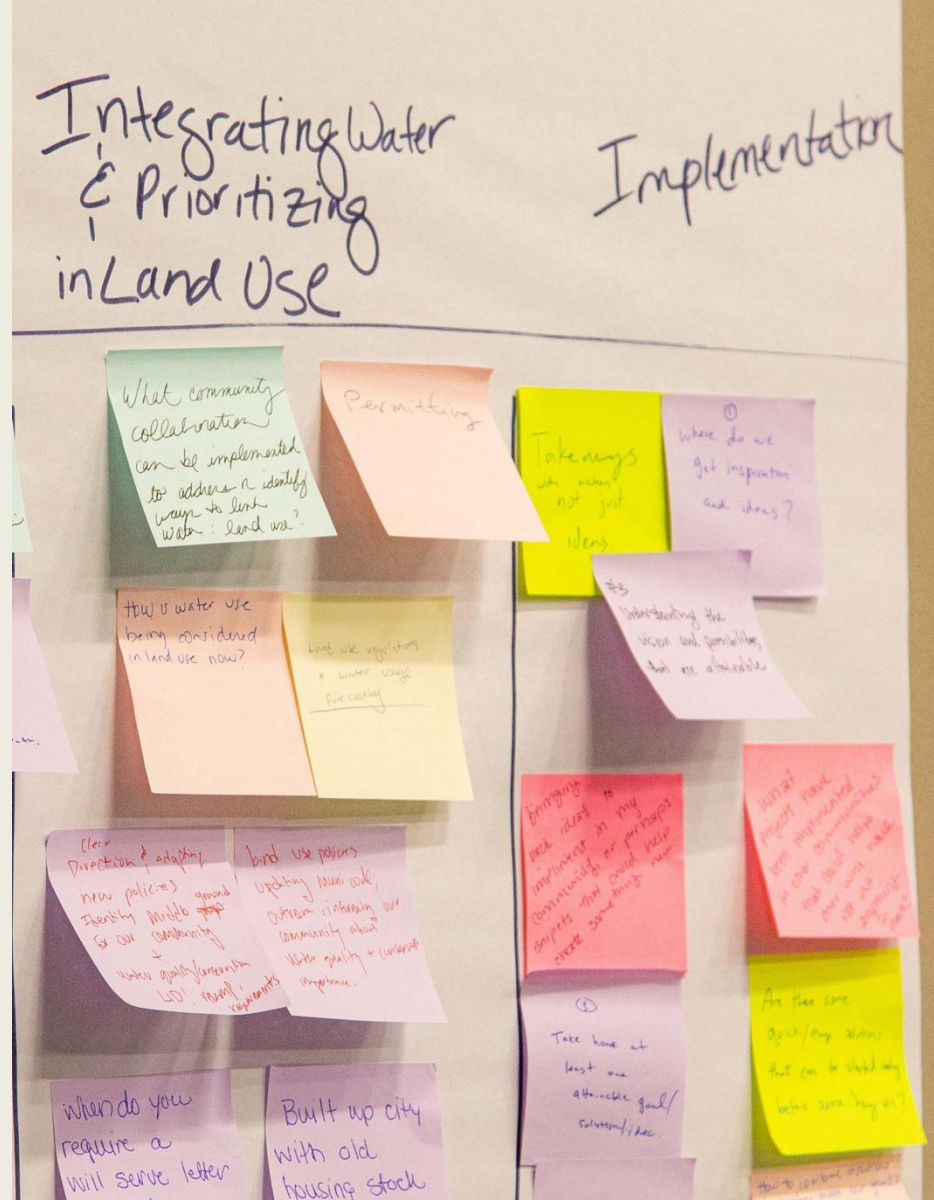 Integrating Water
& Prioritizing
in Land Use
Implementation
What community
collaboration
can be implemented
to address or identify
ways to link
water : land use?
Permitting
How is water use
being considered
in land use now?
Land use regulations
& water usage
forecasting
Clear
Direction & adapting
new policies
Identify middle ground
for our community
+
water quality/conservation
requirements
land use policies
updating muni code,
Outreach informing our
community about
Water quality + conservation
importance.
When do you
require a
will serve letter
Built up city
with old
housing stock
Takeaways
with action
not just
ideas.
①
where do we
get inspiration
and ideas?
#3
Understanding the
vision and possibilities
that are attainable
bringing
back ideas to
impliment in my
community or perhaps
snippets that could help
create something new
What
projects have
been implemented
in our communities
that could
Take home at
least one
attainable goal/
solution/idea.
Are there some
quick/easy solutions
that can be started today
how to combine